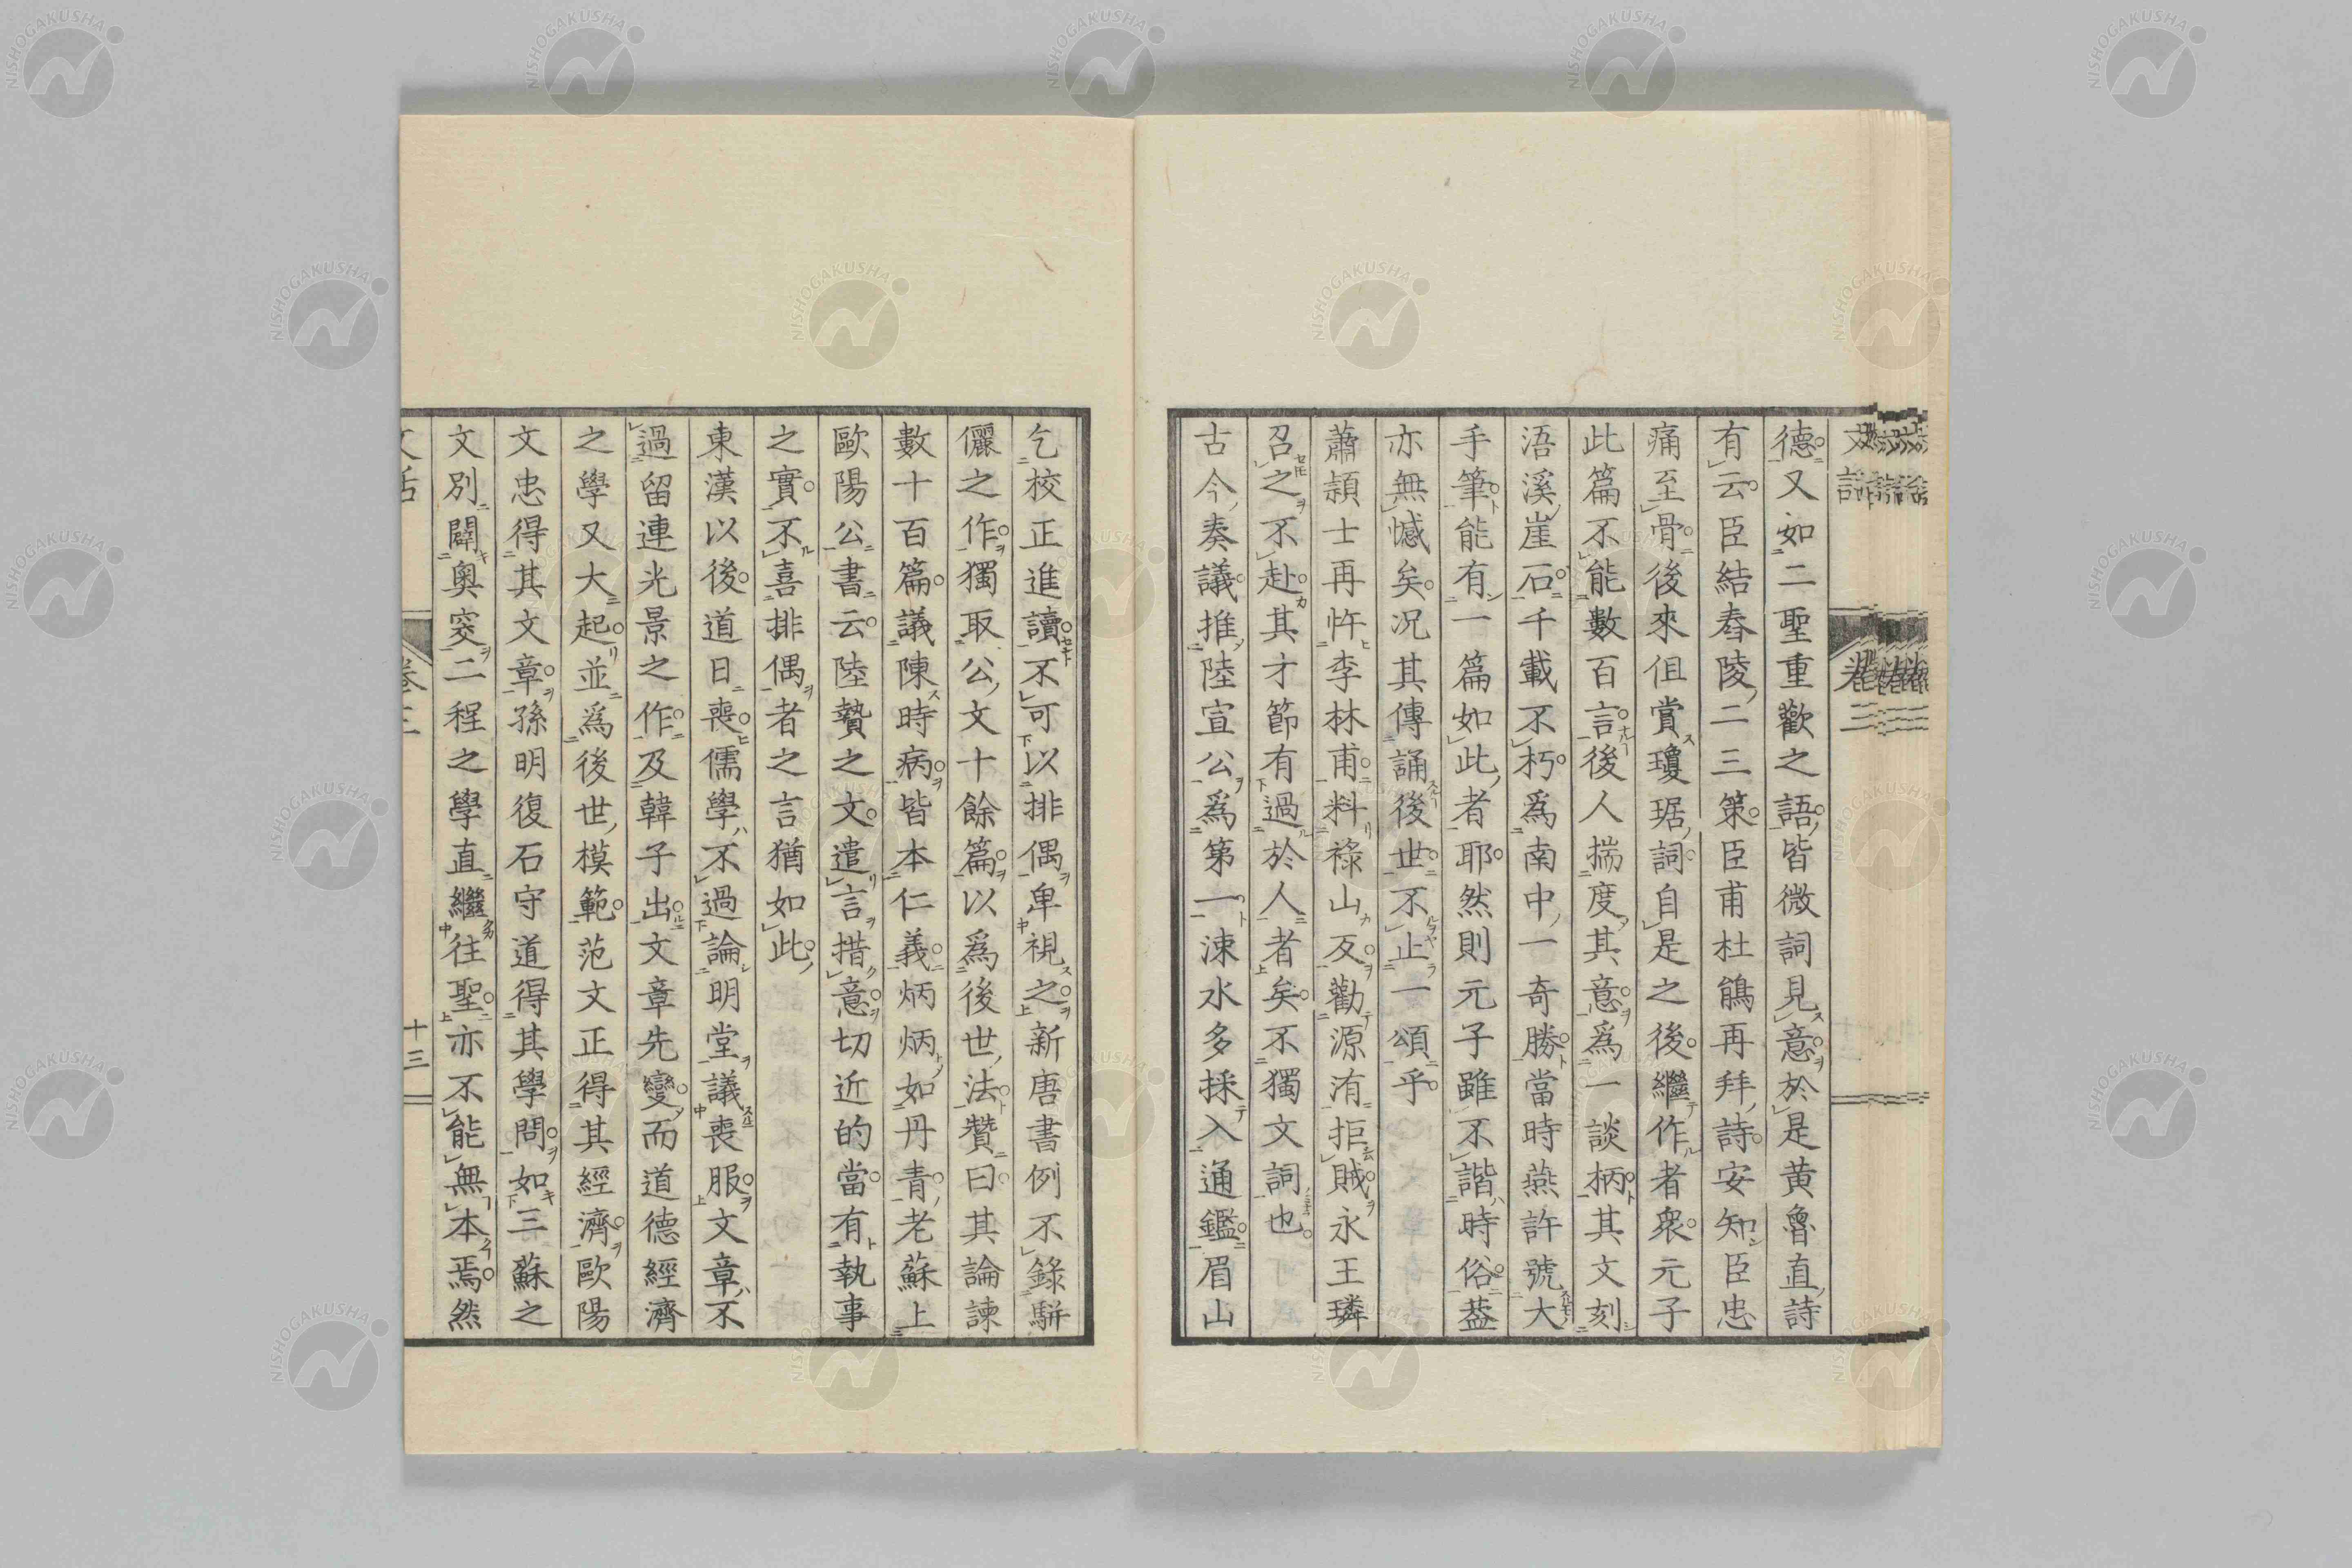 德又如二聖重歡之語皆微詞見意於是黃魯直詩
有云臣結舂陵二三策臣甫杜鵑再拜詩安知臣忠
痛至骨後來但賞瓊琚詞自是之後繼作者衆元子
此篇不能數百言後人揣度其意爲一談柄其文刻
浯溪崖石千載不朽爲南中一奇勝當時燕許號大
手筆能有一篇如此者耶然則元子雖不諧時俗葢
亦無憾矣況其傳誦後世不止一頌乎
蕭頴士再忤李林甫料祿山反勸源洧拒賊永王璘
召之不赴其才節有過於人者矣不獨文詞也
古今奏議推陸宣公爲第一涑水多採入通鑑眉山
乞校正進讀不可以排偶卑視之新唐書例不錄駢
儷之作獨取公文十餘篇以爲後世法贊曰其論諫
數十百篇議陳時病皆本仁義炳炳如丹青老蘇上
歐陽公書云陸贄之文遣言措意切近的當有執事
之實不喜排偶者之言猶如此
東漢以後道日喪儒學不過論明堂議喪服文章不
過留連光景之作及韓子出文章先變而道德經濟
之學又大起並爲後世模範范文正得其經濟歐陽
文忠得其文章孫明復石守道得其學問如三蘇之
文別闢奧窔二程之學直繼往聖亦不能無本焉然
文話 卷三 十三